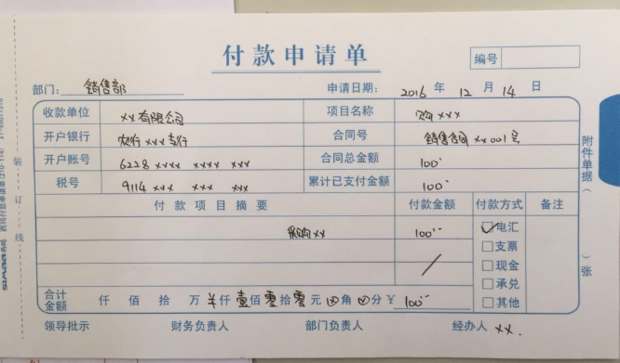 付款申请单
编号
部门：销售部 申请日期：2016 年 12 月 14 日
收款单位 xx有限公司 项目名称 购xxx
开户银行 农行xxx支行 合同号 销售合同xx001号
开户账号 6228 xxx xxxx xxx 合同总金额 100
税号 9114 xxx xxx xxx 累计已支付金额 100
付款项目摘要 付款金额 付款方式 备注
采购xx 100 电汇
支票
现金
承兑
其他
合计金额 仟 佰 拾 万 仟壹佰零拾零元 角 分 ￥ 100
领导批示 财务负责人 部门负责人 经办人 xx.
装订线
附件单据（ ）张